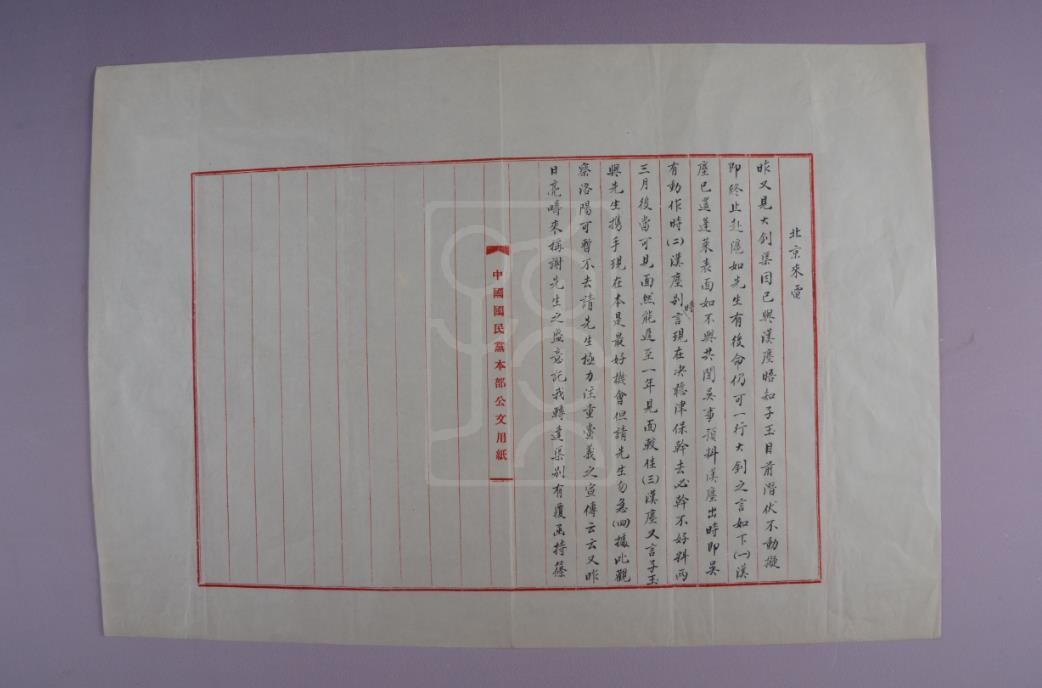 北京來電
昨又見大釗渠因已與漢塵晤知子玉目前潛伏不動擬
即終止赴滬如先生有後命仍可一行大釗之言如下(一)漢
塵已還蓬萊表面如不與共聞吳事預料漢塵出時即吳
有動作時(二)漢塵別時言現在決聽津保幹去必幹不好料兩
三月後當可見面然能遲至一年見面較佳(三)漢塵又言子玉
與先生携手現在本是最好機會但請先生勿急(四)據此觀
察洛陽可暫不去請先生極力注重黨義之宣傳云云又昨
日亮疇來稱謝先生之盛意託我轉達渠别有覆函持篠
中國國民黨本部公文用紙